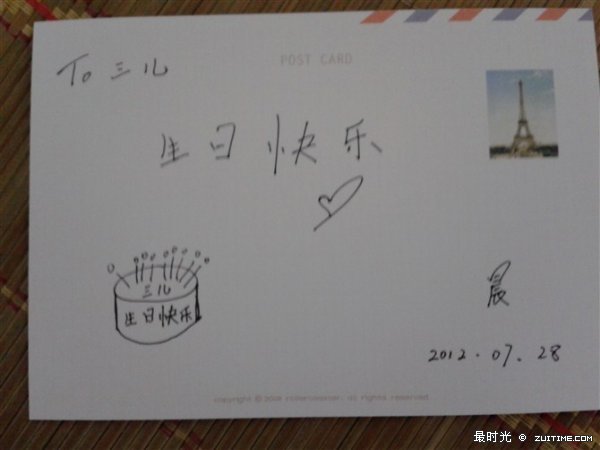 POST CARD
To 三儿
生日快乐
三儿
生日快乐
晨
2012.07.28
最时光 © ZUITIME.COM